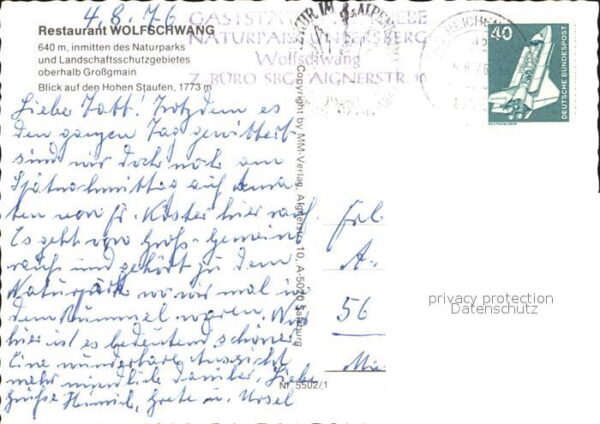 4.8.76
Restaurant WOLFSCHWANG
640 m, inmitten des Naturparks
und Landschaftsschutzgebietes
oberhalb Großgmain
Blick auf den Hohen Staufen, 1773 m
NATURPARK UNTERSBERG
Wolfschwang
Z. BÜRO SBG. AIGNERSTR. 10
40
DEUTSCHE BUNDESPOST
Copyright by MM-Verlag, Aignerstr. 10, A-5020 Salzburg
Trotzdem es
den ganzen Tag gewittert
sind wir doch noch am
Spätnachmittag auf
ten von Fr. Koster hier rauf.
Es geht von Groß-Gemein
rauf und gehört zu dem
Naturpark wo wir mal in
dem waren. Nur
hier ist es bedeutend schöner
Eine wunderbare Aussicht
mehr mündlich darüber. Liebe
Grüße Grete u. Ursel
56
Nr. 5502/1
privacy protection
Datenschutz